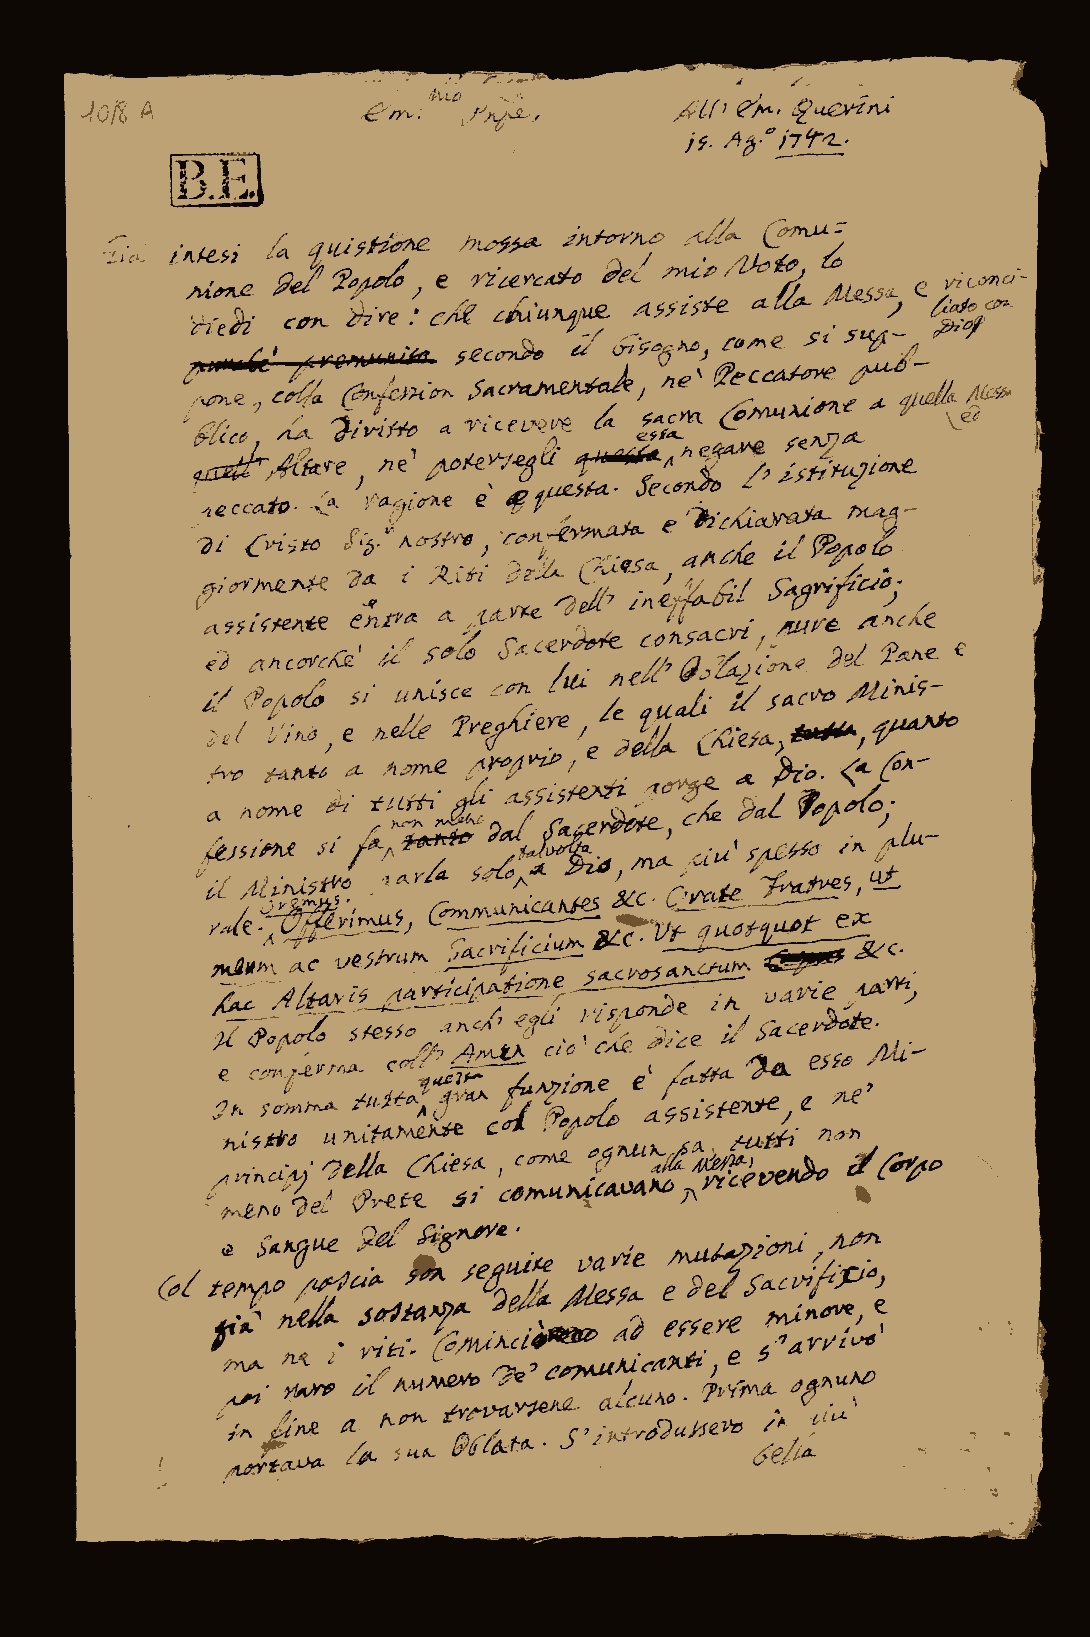 1078 A
Em.nio Prpe.
All' Em. Querini
15. Ag.o 1742.
B.E.
Già intesi la quistione mossa intorno alla Comu=
nione del Popolo, e ricercato del mio Voto, lo
diedi con dire: che chiunque assiste alla Messa, e riconci-
liato con Dio,
purchè premunito secondo il bisogno, come si sup-
pone, colla Confession Sacramentale, nè Peccatore pub-
blico, ha diritto a ricevere la sacra Comunione a quella Messa
ed
quell' Altare, nè potersegli questa essa negare senza
peccato. La ragione è questa. Secondo l'istituzione
di Cristo Sig.r nostro, confermata e dichiarata mag-
giormente da i Riti della Chiesa, anche il Popolo
assistente entra a parte dell' ineffabil Sagrificio;
ed ancorchè il solo Sacerdote consacri, pure anche
il Popolo si unisce con lui nell' Oblazione del Pane e
del Vino, e nelle Preghiere, le quali il sacro Minis-
tro tanto a nome proprio, e della Chiesa, tutta, quanto
a nome di tutti gli assistenti porge a Dio. La Con-
fessione si fa tanto non meno dal Sacerdote, che dal Popolo;
il Ministro parla solo talvolta a Dio, ma piu' spesso in plu-
rale. Oremus. Offerimus, Communicantes &c. Orate Fratres, ut
meum ac vestrum Sacrificium &c. Ut quotquot ex
hac Altaris participatione sacrosanctum Corpus &c.
Il Popolo stesso anch' egli risponde in varie parti,
e conferma coll' Amen ciò che dice il Sacerdote.
In somma tutta questa gran funzione è fatta da esso Mi-
nistro unitamente col Popolo assistente, e ne'
principj della Chiesa, come ognun sa, tutti non
meno del Prete si comunicavano alla Messa, ricevendo il Corpo
e Sangue del Signore.
Col tempo poscia son seguite varie mutazioni, non
già nella sostanza della Messa e del Sacrifizio,
ma ne i riti. Cominciò ad essere minore, e
poi raro il numero de' comunicanti, e s'arrivò
in fine a non trovarsene alcuno. Prima ognuno
portava la sua Oblata. S'introdussero in più